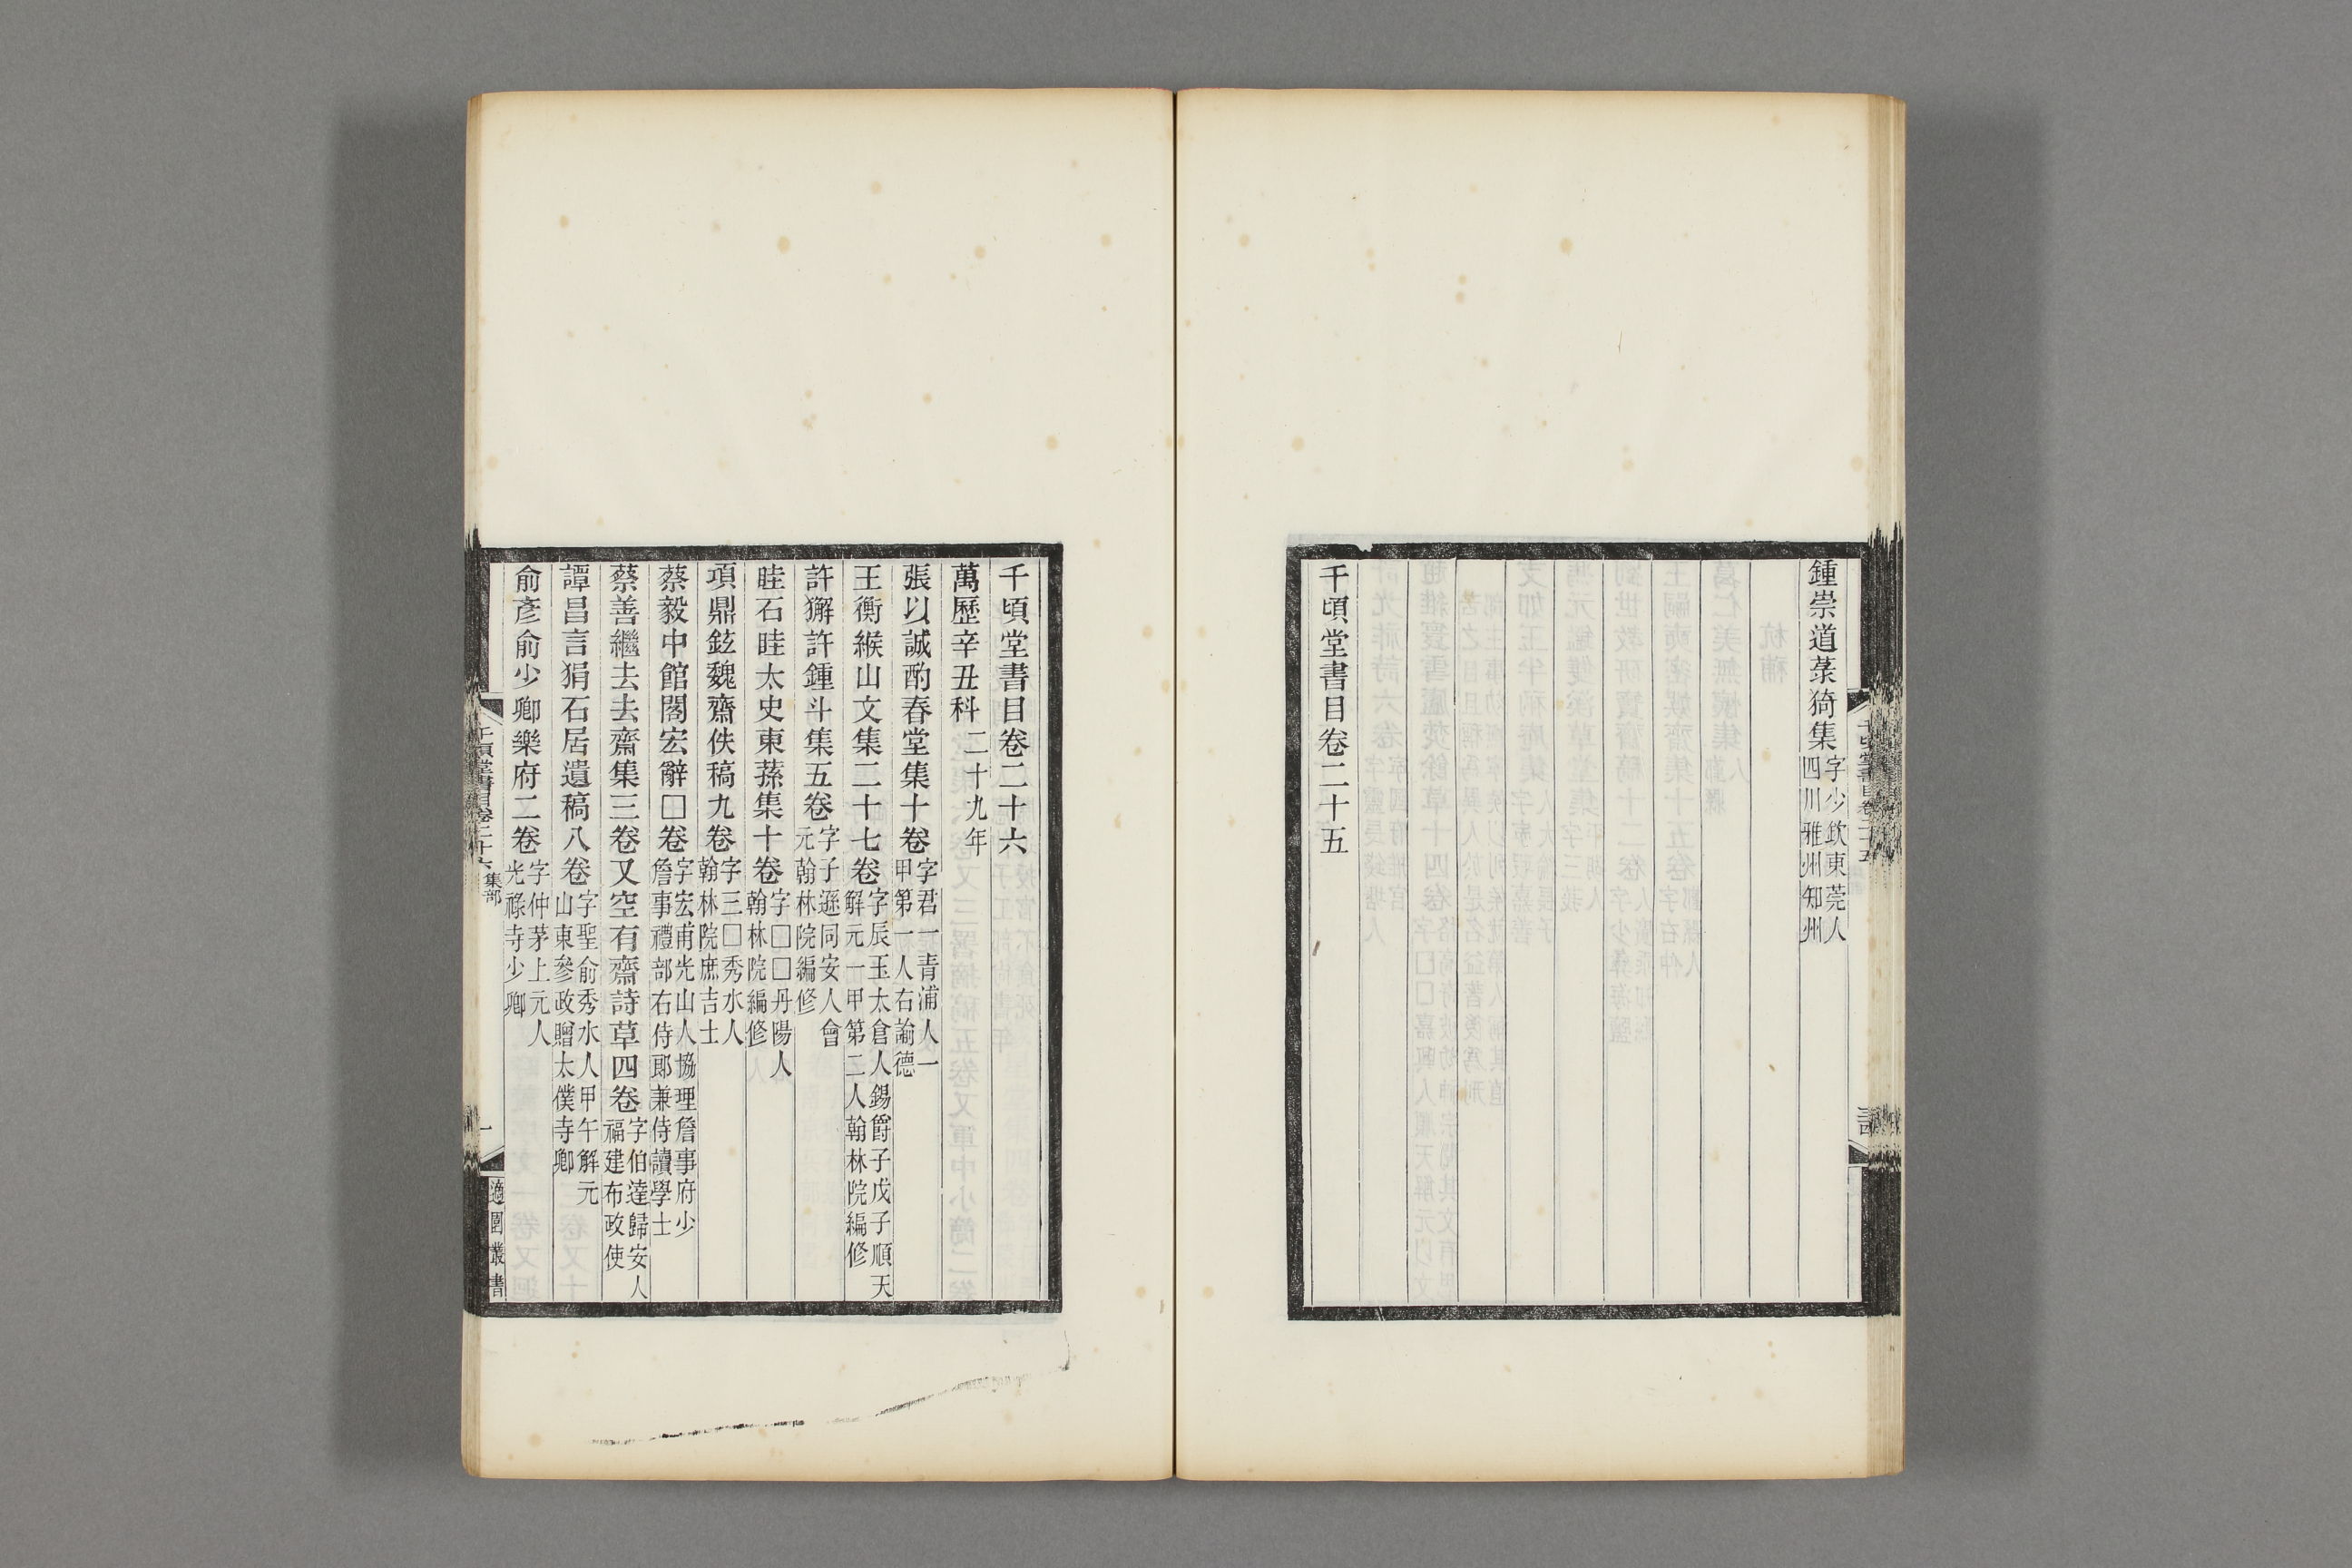 鍾崇道菉猗集字少欽東莞人
四川雅州知州
千頃堂書目卷二十五
千頃堂書目卷二十六
萬歷辛丑科二十九年
張以誠酌春堂集十卷字君一青浦人一
甲第一人右諭德
王衡緱山文集二十七卷字辰玉太倉人錫爵子戊子順天
解元一甲第二人翰林院編修
許獬許鍾斗集五卷字子遜同安人會
元翰林院編修
眭石眭太史東蓀集十卷字□□丹陽人
翰林院編修
項鼎鉉魏齋佚稿九卷字三□秀水人
翰林院庶吉士
蔡毅中館閣宏辭□卷字宏甫光山人協理詹事府少
詹事禮部右侍郎兼侍讀學士
蔡善繼去去齋集三卷又空有齋詩草四卷字伯達歸安人
福建布政使
譚昌言狷石居遺稿八卷字聖俞秀水人甲午解元
山東參政贈太僕寺卿
俞彥俞少卿樂府二卷字仲茅上元人
光祿寺少卿
千頃堂書目卷二十六 集部
一
適園叢書